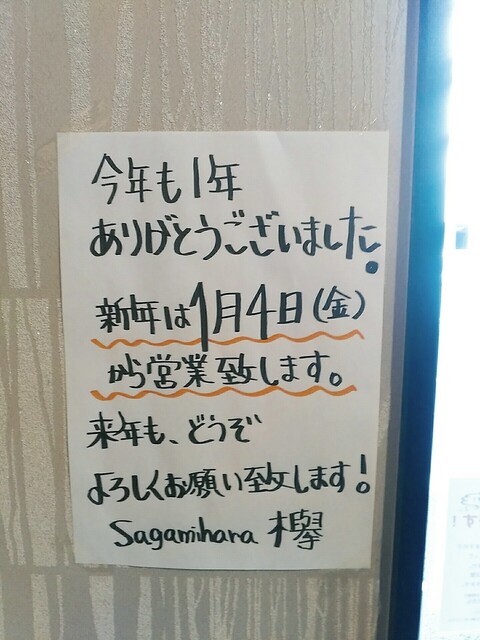 今年も1年
ありがとうございました。
新年は1月4日(金)
から営業致します。
来年も、どうぞ
よろしくお願い致します!
Sagamihara 欅